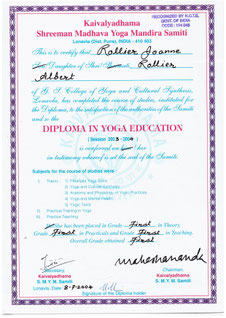 Kaivalyadhama
RECOGNIZED BY N.C.T.E.
GOVT. OF INDIA
CODE : 114046
Shreeman Madhava Yoga Mandira Samiti
Lonavla (Dist. Pune), INDIA - 410 403
This is to certify that Rallier Joanne
Daughter of Shri Rallier
Albert
of G. S. College of Yoga and Cultural Synthesis,
Lonavla, has completed the course of studies, instituted for
the Diploma, to the satisfaction of the authorities of the
and the
DIPLOMA IN YOGA EDUCATION
( Session 2003 - 2004 )
is conferred on her
in testimony whereof is set the seal of the Samiti.
Subjects for the course of studies were :
I Theory : 1)
2) Yoga and Cultural Synthesis
3) Anatomy and Physiology of Yogic Practices
4) Yoga and Mental Health
5) Yogic Texts
II Practical Training in Yoga
III Practice Teaching
She has been placed in Grade First in Theory
Grade First in Practicals and Grade First in Teaching.
Overall Grade obtained First
Maheshananda
Secretary,
Kaivalyadhama
S. M. Y. M. Samiti
Chairman,
Kaivalyadhama
S. M. Y. M. Samiti
Lonavla, Date
Signature of the Diploma holder